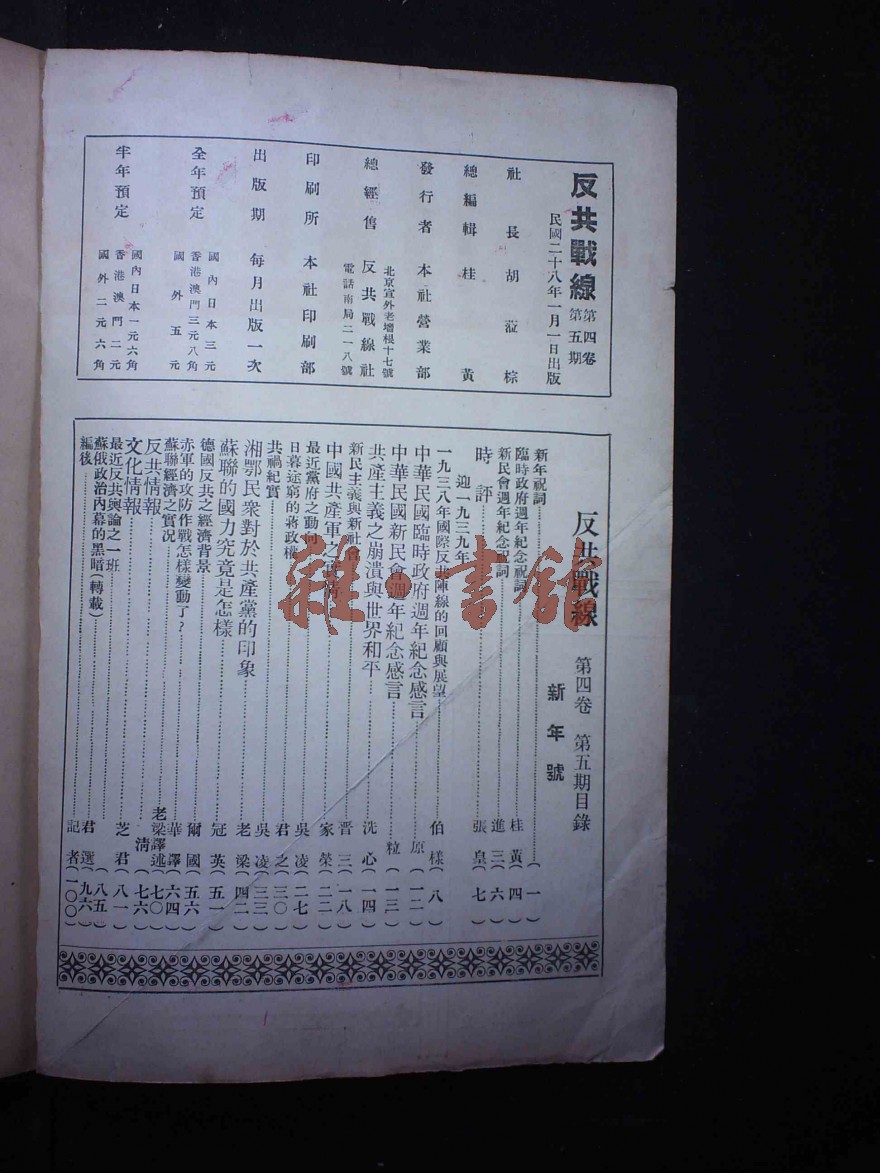 反共戰線 第四卷 第五期
民國二十八年一月一日出版
社長 胡蒞棕
總編輯 桂黃
發行者 本社營業部
北京宣外老墻根十七號
總經售 反共戰線社
電話南局二一八號
印刷所 本社印刷部
出版期 每月出版一次
全年預定
國內日本三元
香港澳門三元八角
國外五元
半年預定
國內日本一元六角
香港澳門二元
國外二元六角
反共戰線 第四卷 第五期目錄
新年號
新年祝詞(一)
臨時政府週年紀念祝詞 桂黃(四)
新民會週年紀念祝詞 進三(六)
時評 張皇(七)
迎一九三九年
一九三八年國際反共陣線的回顧與展望 伯樣(八)
中華民國臨時政府週年紀念感言 原(一二)
中華民國新民會週年紀念感言 粒(一三)
共產主義之崩潰與世界和平 洗心(一四)
新民主義與新社會 晋三(一八)
中國共產軍之 家榮(二二)
最近黨府之動向 吳凌(二七)
日暮途窮的蔣政權 君之(三〇)
共禍紀實 吳凌(三三)
湘鄂民衆對於共產黨的印象 老梁(四二)
蘇聯的國力究竟是怎樣 冠英(五一)
德國反共之經濟背景 爾國(五六)
赤軍的攻防作戰怎樣變動了? 華譯(六四)
蘇聯經濟之實況 老梁譯述(七〇)
反共情報 清(七六)
文化情報 芝君(八一)
最近反共輿論之一班(八五)
蘇俄政治內幕的黑暗(轉載) 君選(九六)
編後 記者(一〇〇)
雜·書館